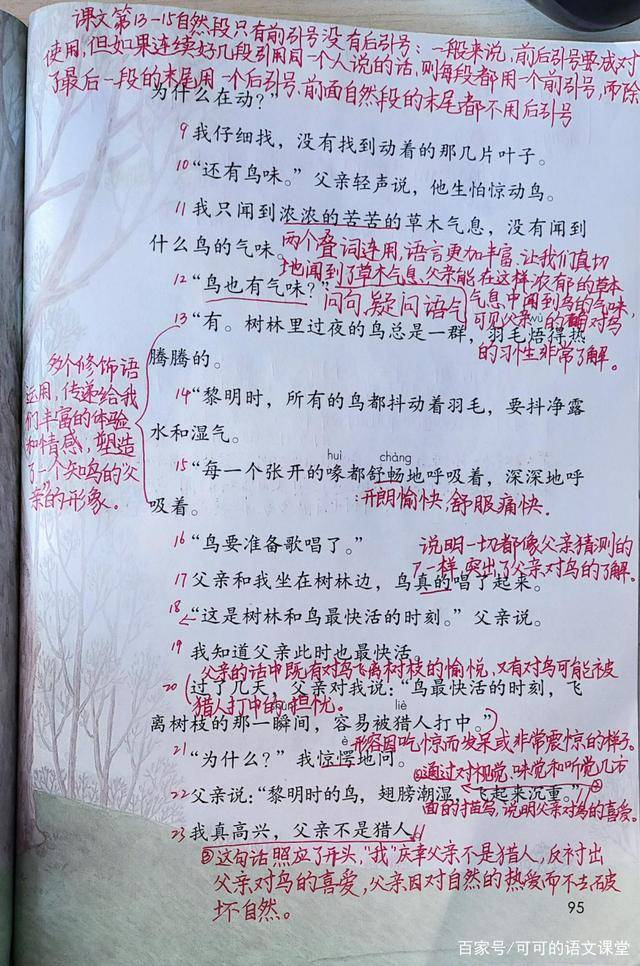 课文第13-15自然段只有前引号没有后引号：一般来说，前后引号要成对
使用，但如果连续好几段引用同一个人说的话，则每段都用一个前引号，而除
了最后一段的末尾用一个后引号，前面自然段的末尾都不用后引号
为什么在动？”
9 我仔细找，没有找到动着的那几片叶子。
10 “还有鸟味。”父亲轻声说，他生怕惊动鸟。
11 我只闻到浓浓的苦苦的草木气息，没有闻到
什么鸟的气味。
两个叠词连用，语言更加丰富，让我们真切
地闻到了草木气息，父亲能在这样浓郁的草木
气息中闻到鸟的气味，
可见父亲的对鸟
的习性非常了解。
12 “鸟也有气味？”
问句，疑问语气
wù
13 “有。树林里过夜的鸟总是一群，羽毛焐得热
腾腾的。
多个修饰语
运用，传递给我
们丰富的体验
和情感，塑造
了一个“知鸟的父
亲”的形象。
14 “黎明时，所有的鸟都抖动着羽毛，要抖净露
水和湿气。
huì chàng
15 “每一个张开的喙都舒畅地呼吸着，深深地呼
吸着。
：开朗愉快，舒服痛快。
16 “鸟要准备歌唱了。”
说明一切都像父亲猜测的
一样，突出了父亲对鸟的了解。
17 父亲和我坐在树林边，鸟真的唱了起来。
18 “这是树林和鸟最快活的时刻。”父亲说。
19 我知道父亲此时也最快活。
父亲的话中既有对鸟飞离树枝的愉悦，又有对鸟可能被
猎人打中的担忧。
20 过了几天，父亲对我说：“鸟最快活的时刻，飞
liè
离树枝的那一瞬间，容易被猎人打中。”
è
形容因吃惊而发呆或非常震惊的样子。
21 “为什么？”我惊愕地问。
①通过对视觉、味觉和听觉几方
面的描写，说明父亲对鸟的喜爱。
22 父亲说：“黎明时的鸟，翅膀潮湿，飞起来沉重。”
23 我真高兴，父亲不是猎人。
②这句话照应了开头，“我”庆幸父亲不是猎人，反衬出
父亲对鸟的喜爱，父亲因对自然的热爱而不去破
坏自然。
95
百家号/可可的语文课堂